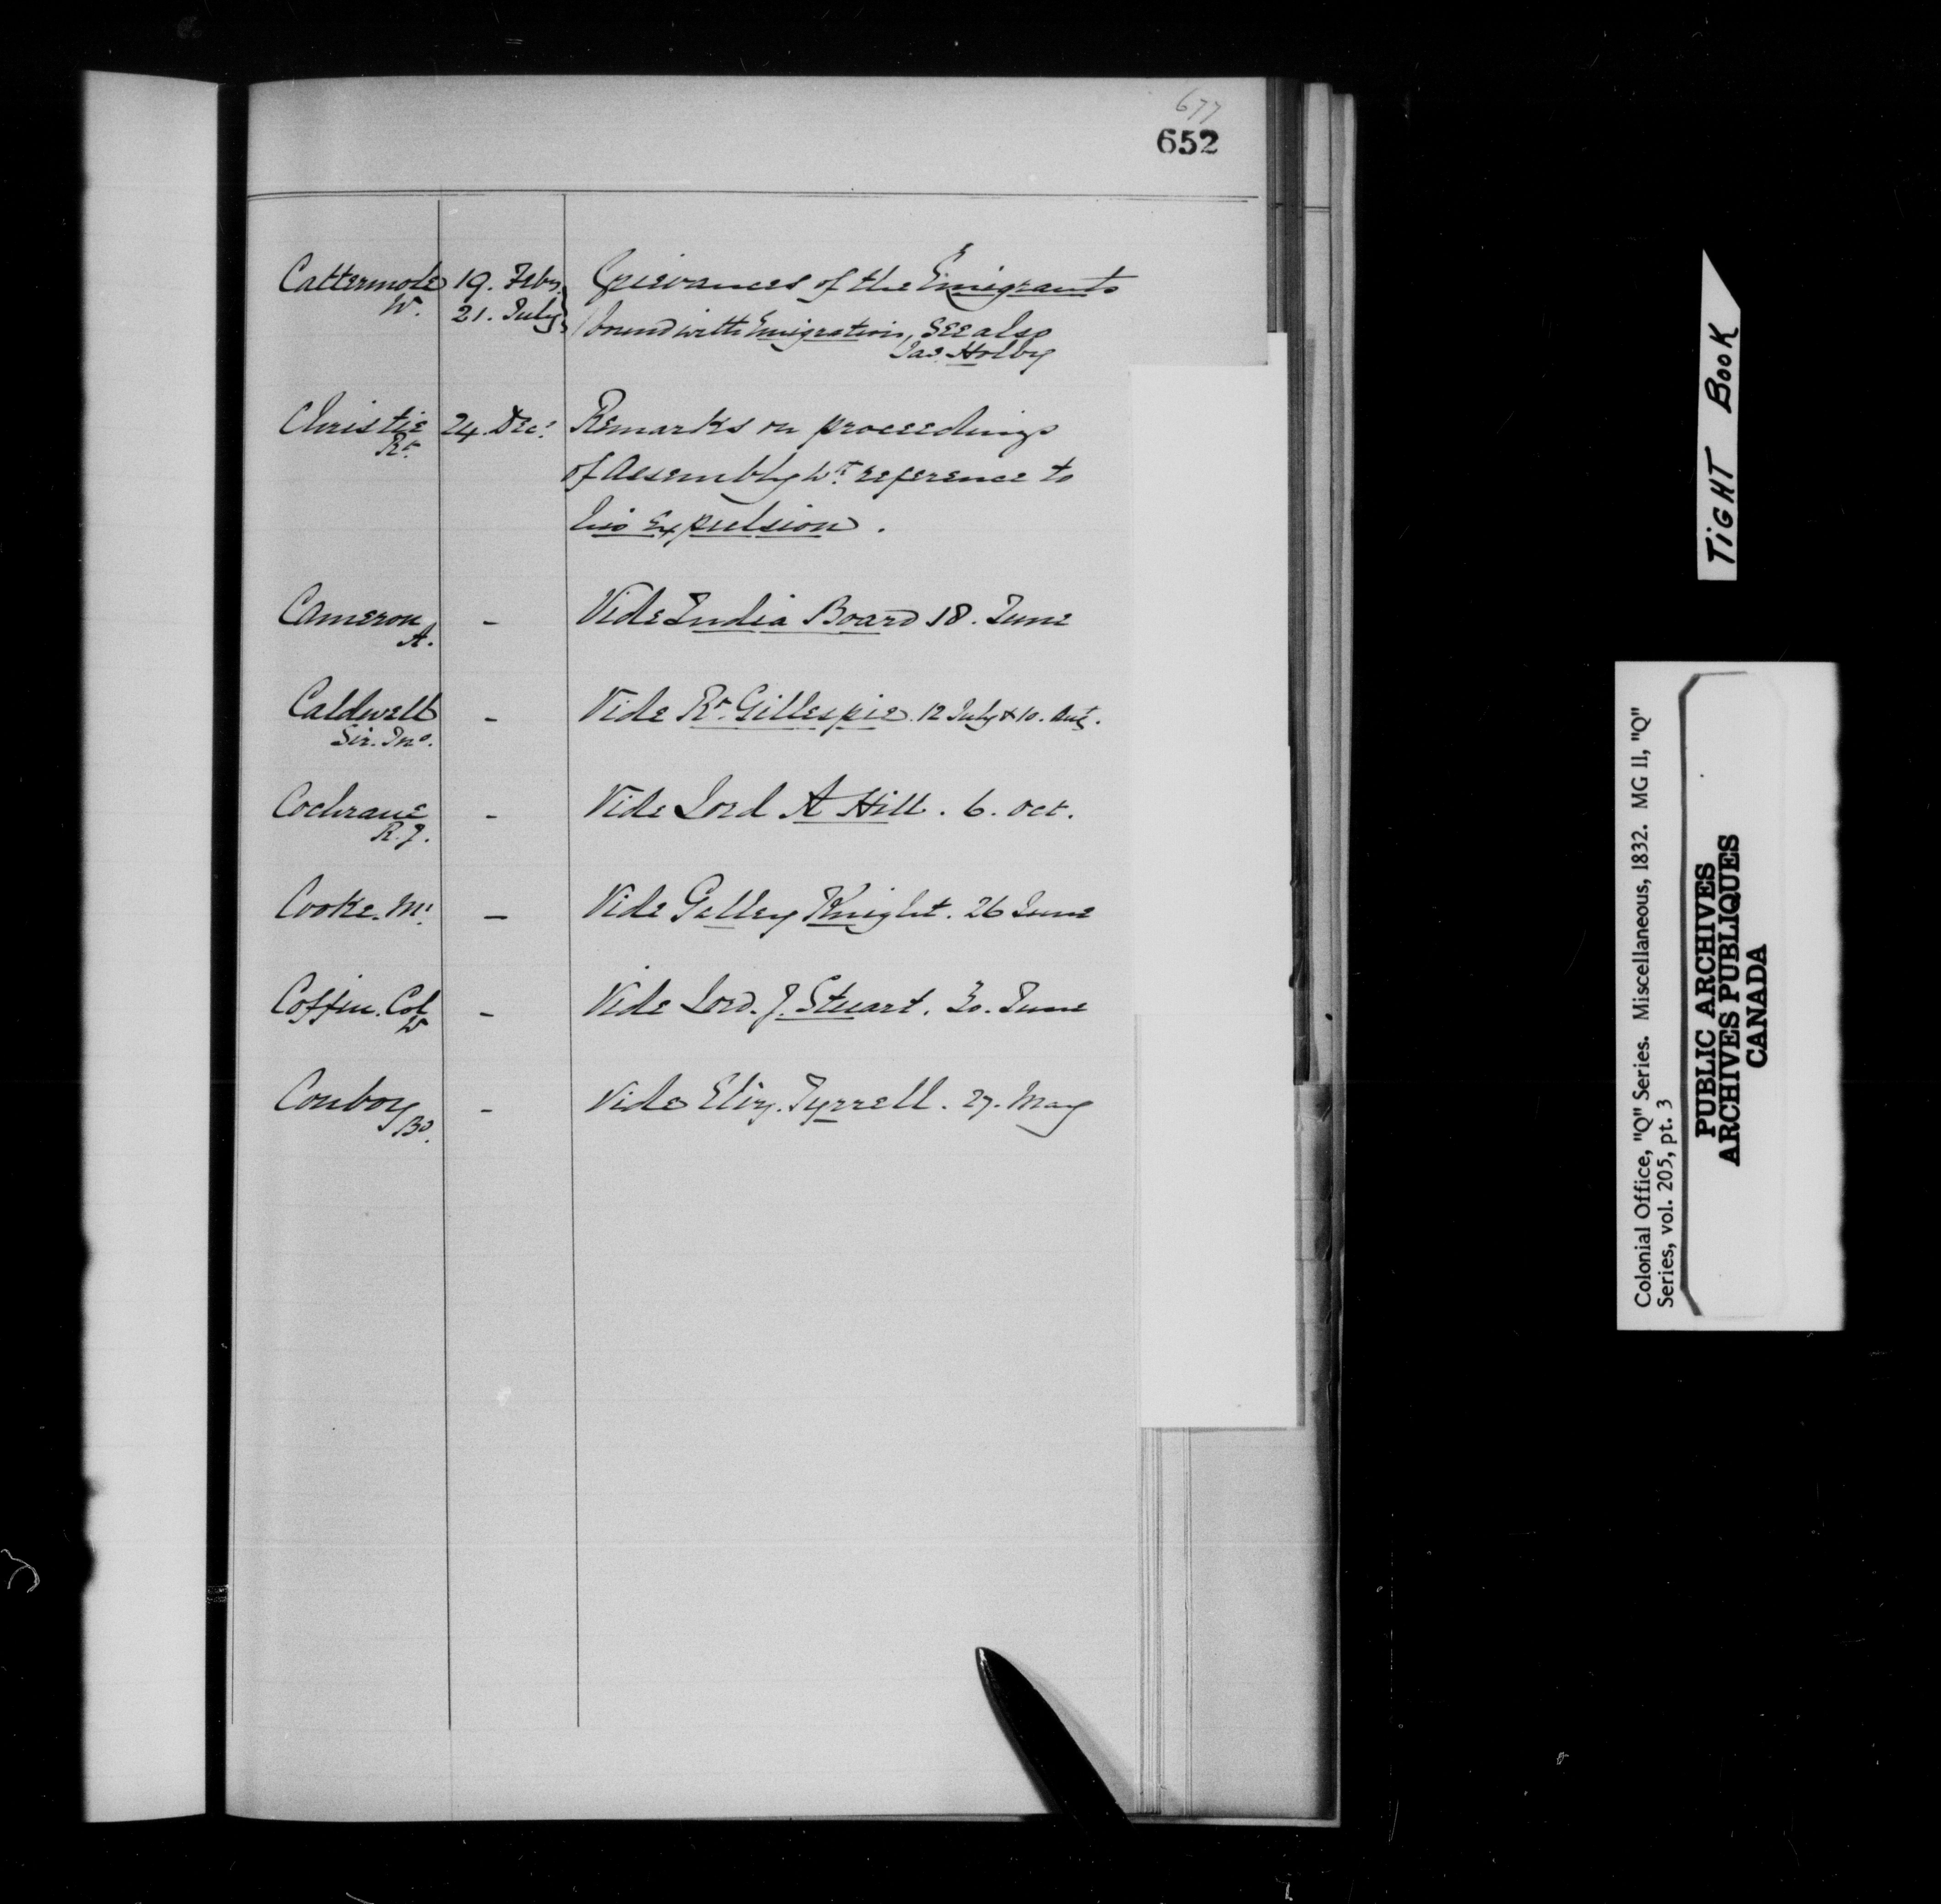 677
652
Cattermole 19. Feby. Grievances of the Emigrants
W. 21. July bound with Emigration, See also
Jas. Holby
Christie 24. Decr. Remarks on proceedings
Rt. of Assembly wt. reference to
his Expulsion.
Cameron - Vide India Board 18. June
A.
Caldwell - Vide Rt. Gillespie. 12 July & 10. Augt.
Sir. Jno.
Cochrane - Vide Lord A Hill. 6. Oct.
R. J.
Cooke. Mr. - Vide Galley Knight. 26 June
Coffin. Col - Vide Lord. J. Stuart. 30. June
W
Conboy - Vide Eliz. Tyrrell. 27. May
Bd.
TIGHT BOOK
Colonial Office, "Q" Series. Miscellaneous, 1832. MG 11, "Q"
Series, vol. 205, pt. 3
PUBLIC ARCHIVES
ARCHIVES PUBLIQUES
CANADA